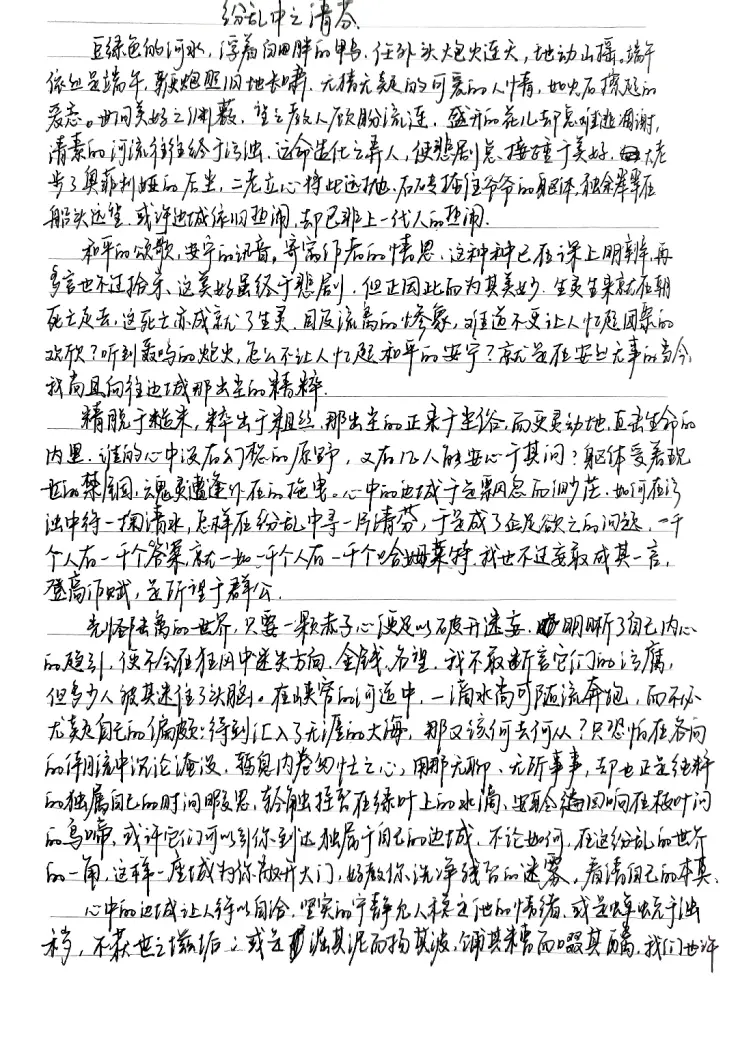 纷乱中之清芬
豆绿色的河水，浮着白田胖的鸭，任外头炮火连天，地动山摇。端午
依旦是端午，鞭炮照旧地长啸，无猜无疑的可爱的人情，如火石擦起的
爱恋。世间美好之渊薮，望之教人顾盼流连，盛开的花儿却总难逃凋谢，
清素的河流往往终于污浊，运命造化之弄人，使悲剧总接踵于美好，大老
步了奥菲利娅的后尘，二老立心将此远抛，石砖掩住爷爷的躯体，独余翠翠在
船头远望，或许边城依旧热闹，却已非上一代人的热闹。
和平的颂歌，安宁的讯音。寄寓作者的情思，这种种已在课上明辨，再
多言也不过拾余，这美好虽终于悲剧，但正因此而为其美妙，生灵生来就在朝
死亡走去，这死亡亦成就了生灵，目及流离的惨象，难道不更让人忆起团聚的
欢欣？听到轰鸣的炮火，怎么不让人忆起和平的安宁？就是在安然无事的当今，
我尚且向往边城那出尘的精粹。
精脱于糙米，粹出于粗丝，那出尘的正来于尘俗，而更灵动地，直击生命的
内里，谁的心中没有幻想的原野，又有几人能安心于其间？躯体受着现
世的禁锢，魂灵遭逢外在的拖曳。心中的边城于是飘忽而渺茫，如何在污
浊中待一掬清水，怎样在纷乱中寻一片清芬，于是成了正是欲之的问题，一千
个人有一千个答案，就一如一千个人有一千个哈姆莱特，我也不过妄取成其一言，
登高作赋，是所望于群公。
光怪陆离的世界，只要一颗赤子心便足以破开迷妄，明晰了自己内心
的趋引，便不会在狂风中迷失方向，金钱、名望，我不敢断言它们的污腐，
但多少人被其迷住了头脑。在峡窄的河道中，一滴水尚可随流奔跑，而不必
尤疑自己的偏颇；待到汇入了无涯的大海，那又该何去何从？只恐怕在各向
的洋流中沉沦淹没，暂息内卷的忙之心，用那无聊、无所事事，却也正是纯粹
的独属自己的时间暇思，轻触挂碧在绿叶上的水滴，安聆编回响在枝叶间
的鸟啼，或许它们可以引你到达独属于自己的边城，不论如何，在这纷乱的世界
的一角，这样一座城为你敞开大门，好教你洗净残留的迷雾，看清自己的本真。
心中的边城让人得以自洽，坚实的宁静允人稳定他的情绪，或是蝉蜕于浊
秽，不获世之滋垢；或是淈其泥而扬其波，餔其糟而啜其醨，我们也许